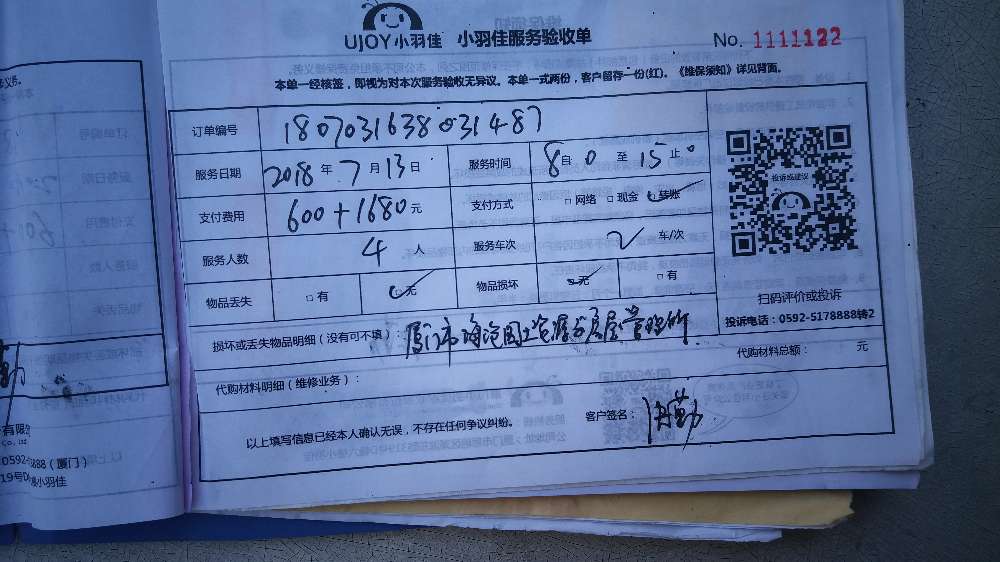 UJOY小羽佳 小羽佳服务验收单 No. 1111122
本单一经核签，即视为对本次服务验收无异议。本单一式两份，客户留存一份(红)。《维保须知》详见背面。
订单编号 1807031638031487
服务日期 2018年7月13日 服务时间 8自0至15止0
支付费用 600+1680元 支付方式 □网络 □现金 □转账
服务人数 4人 服务车次 2车/次
物品丢失 □有 □无 物品损坏 □无 □有
损坏或丢失物品明细（没有可不填）：厦门市海沧国土资源与房屋管理所
代购材料明细（维修业务）： 代购材料总额： 元
以上填写信息已经本人确认无误，不存在任何争议纠纷。 客户签名：
投诉或建议
UJOY
扫码评价或投诉
投诉电话：0592-5178888转2